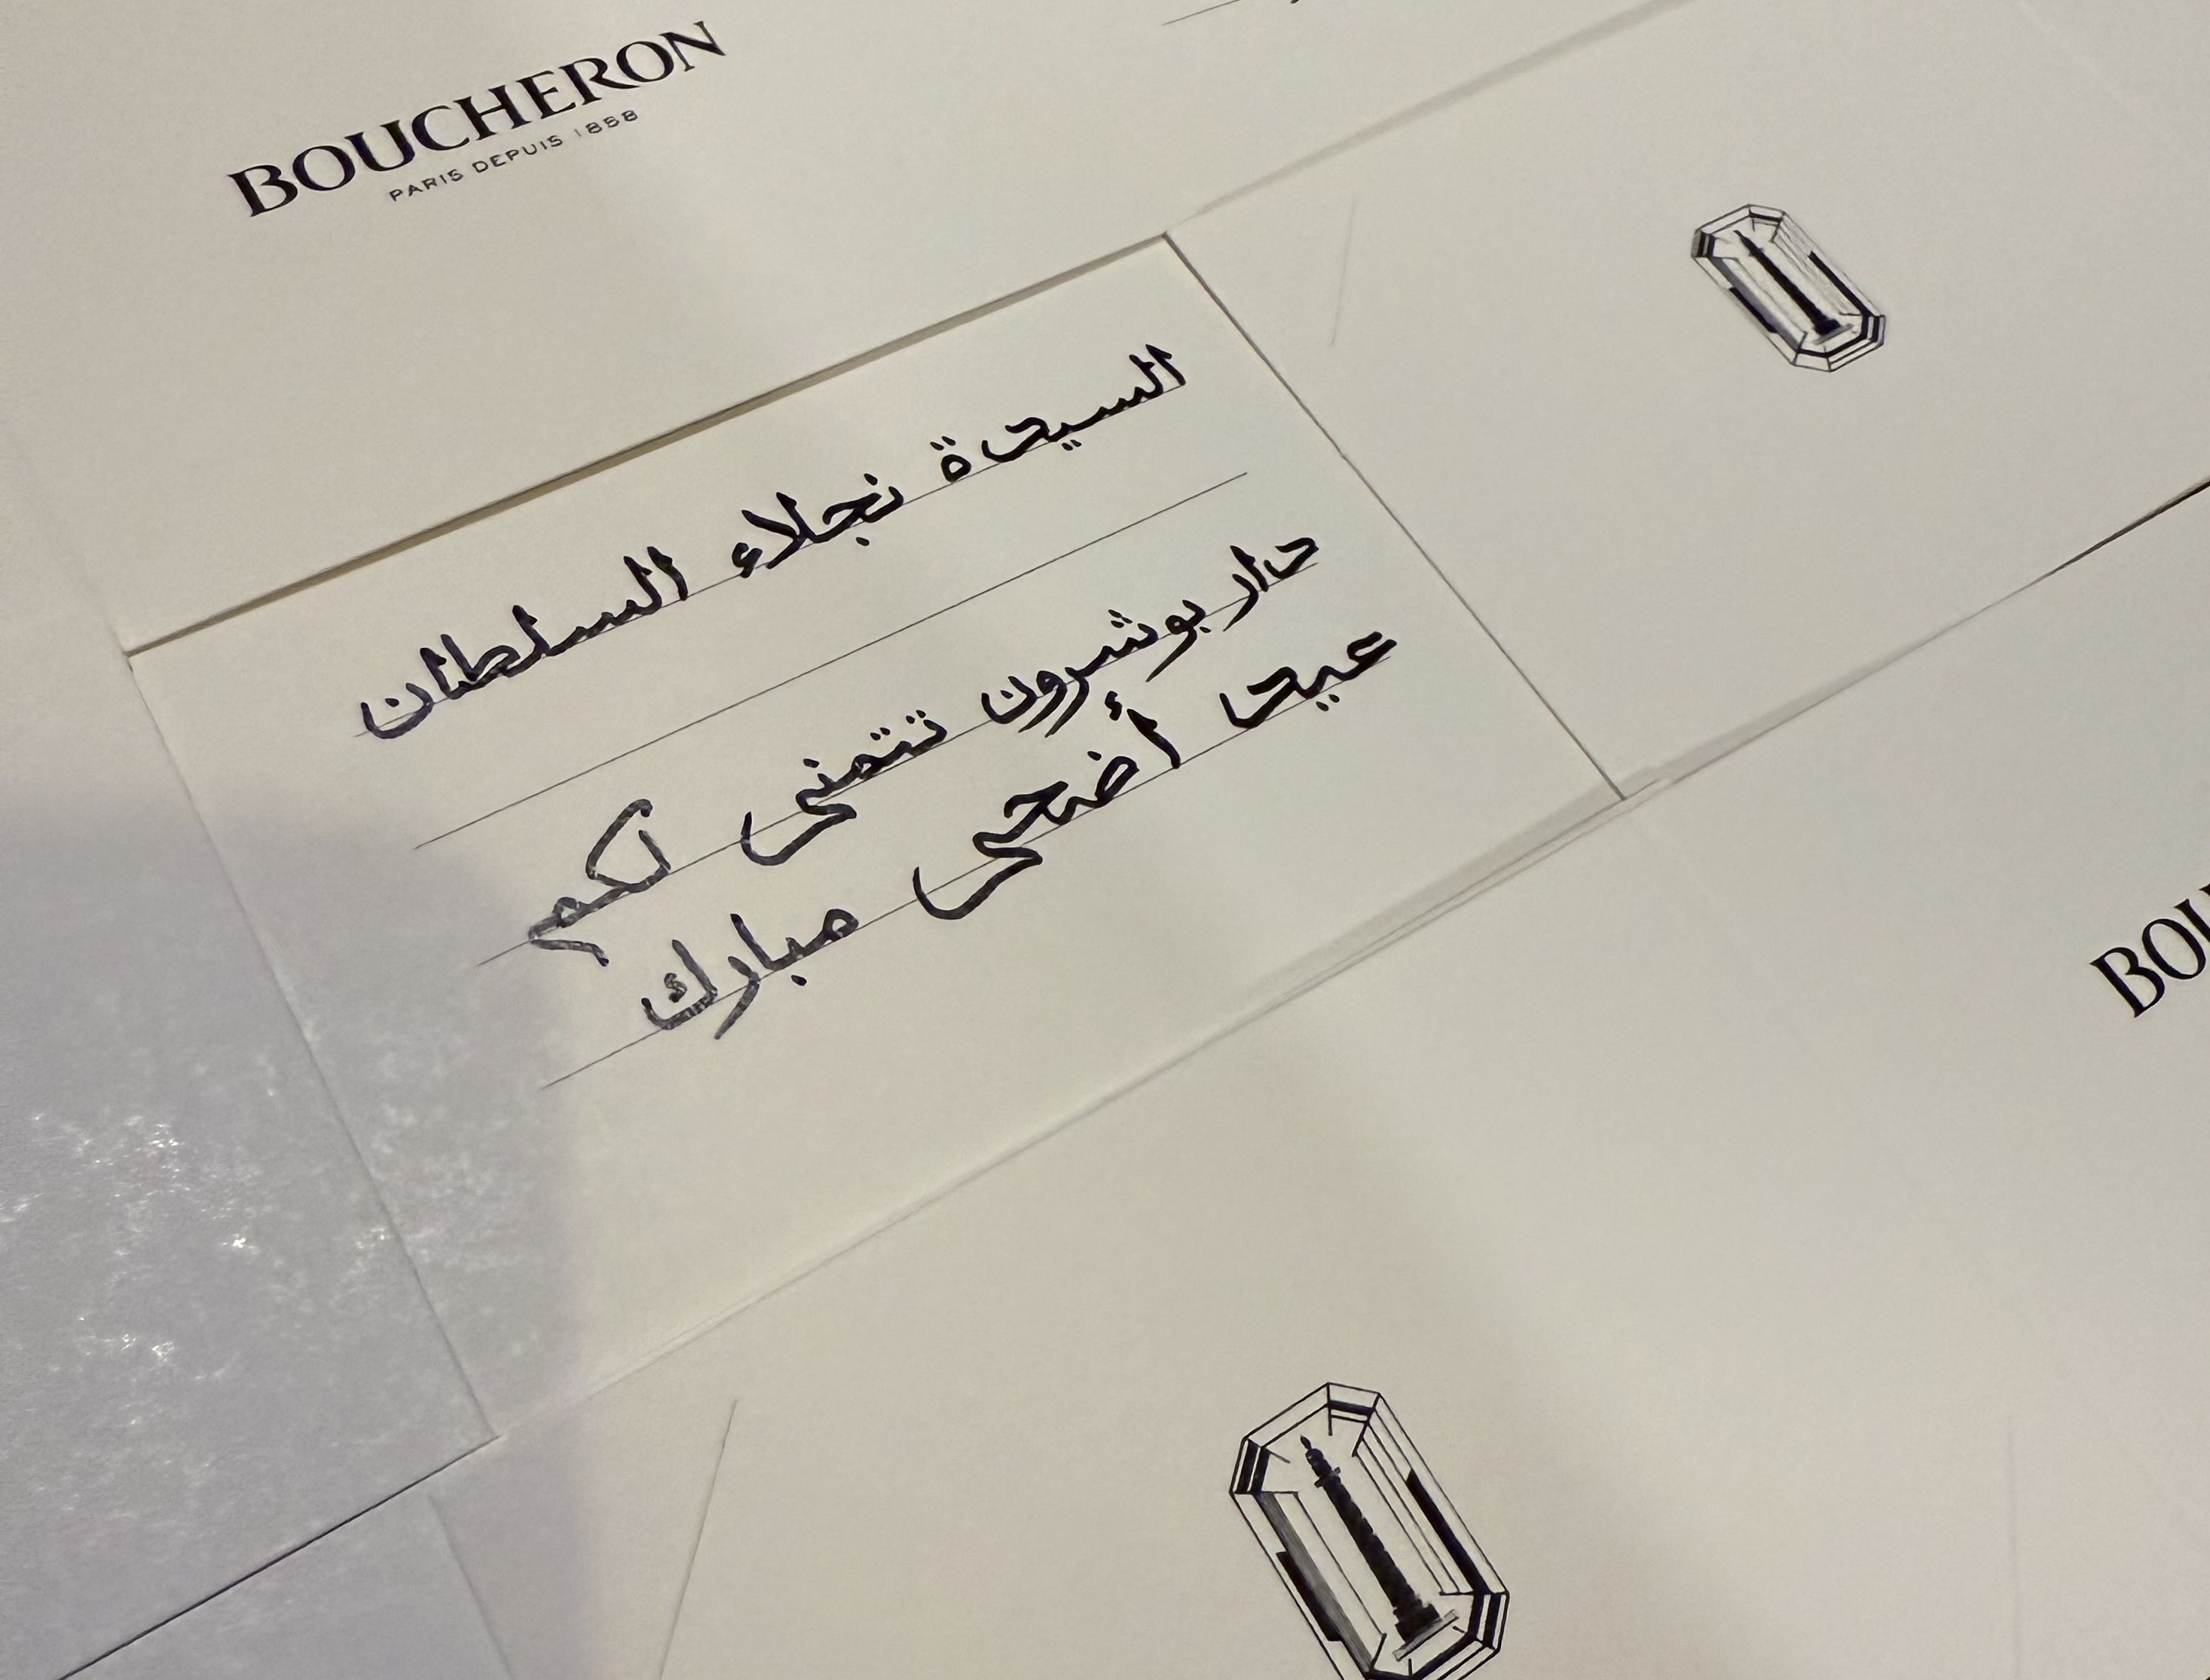 BOUCHERON
PARIS DEPUIS 1858
السيدة نجلاء السلطان
دار بوشرون تتمنى لكم
عيد أضحى مبارك
BOU